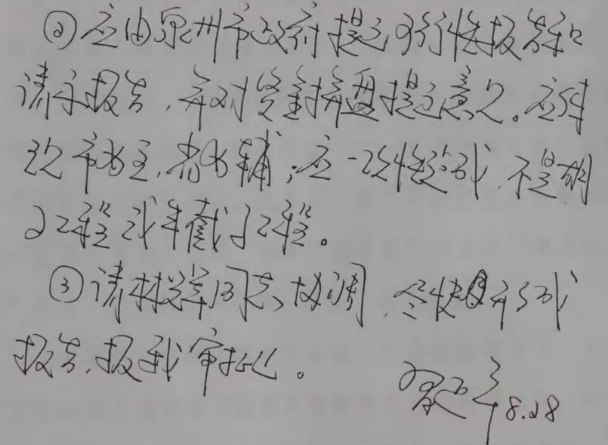 ②应由泉州市政府提出可行性报告和
请示报告，并对资金拼盘提出意见。应体
现市为主，省为辅；应一次性完成，不是胡
子工程或半截子工程。
③请林  同志协调，尽快  形成
报告，报我审批。
8.28